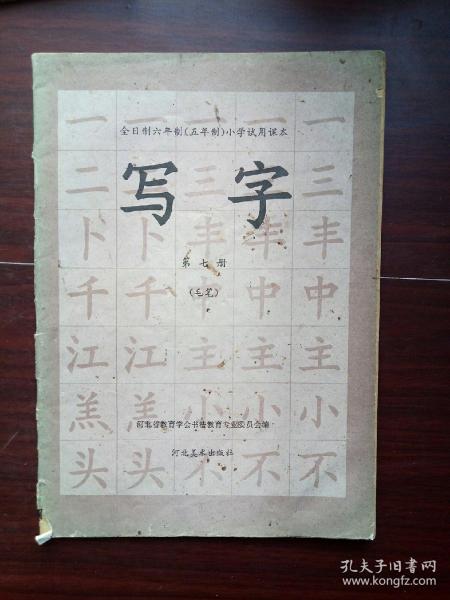 全日制六年制(五年制)小学试用课本
写字
第七册
(毛笔)
河北省教育学会书法教育专业委员会编
河北美术出版社
一 一 一 一 一
二 三 三
卜 卜 丰 丰 丰
千 千 中 中 中
江 江 主 主 主
羔 羔 小 小 小
头 头 不 不 不
孔夫子旧书网
www.kongfz.com